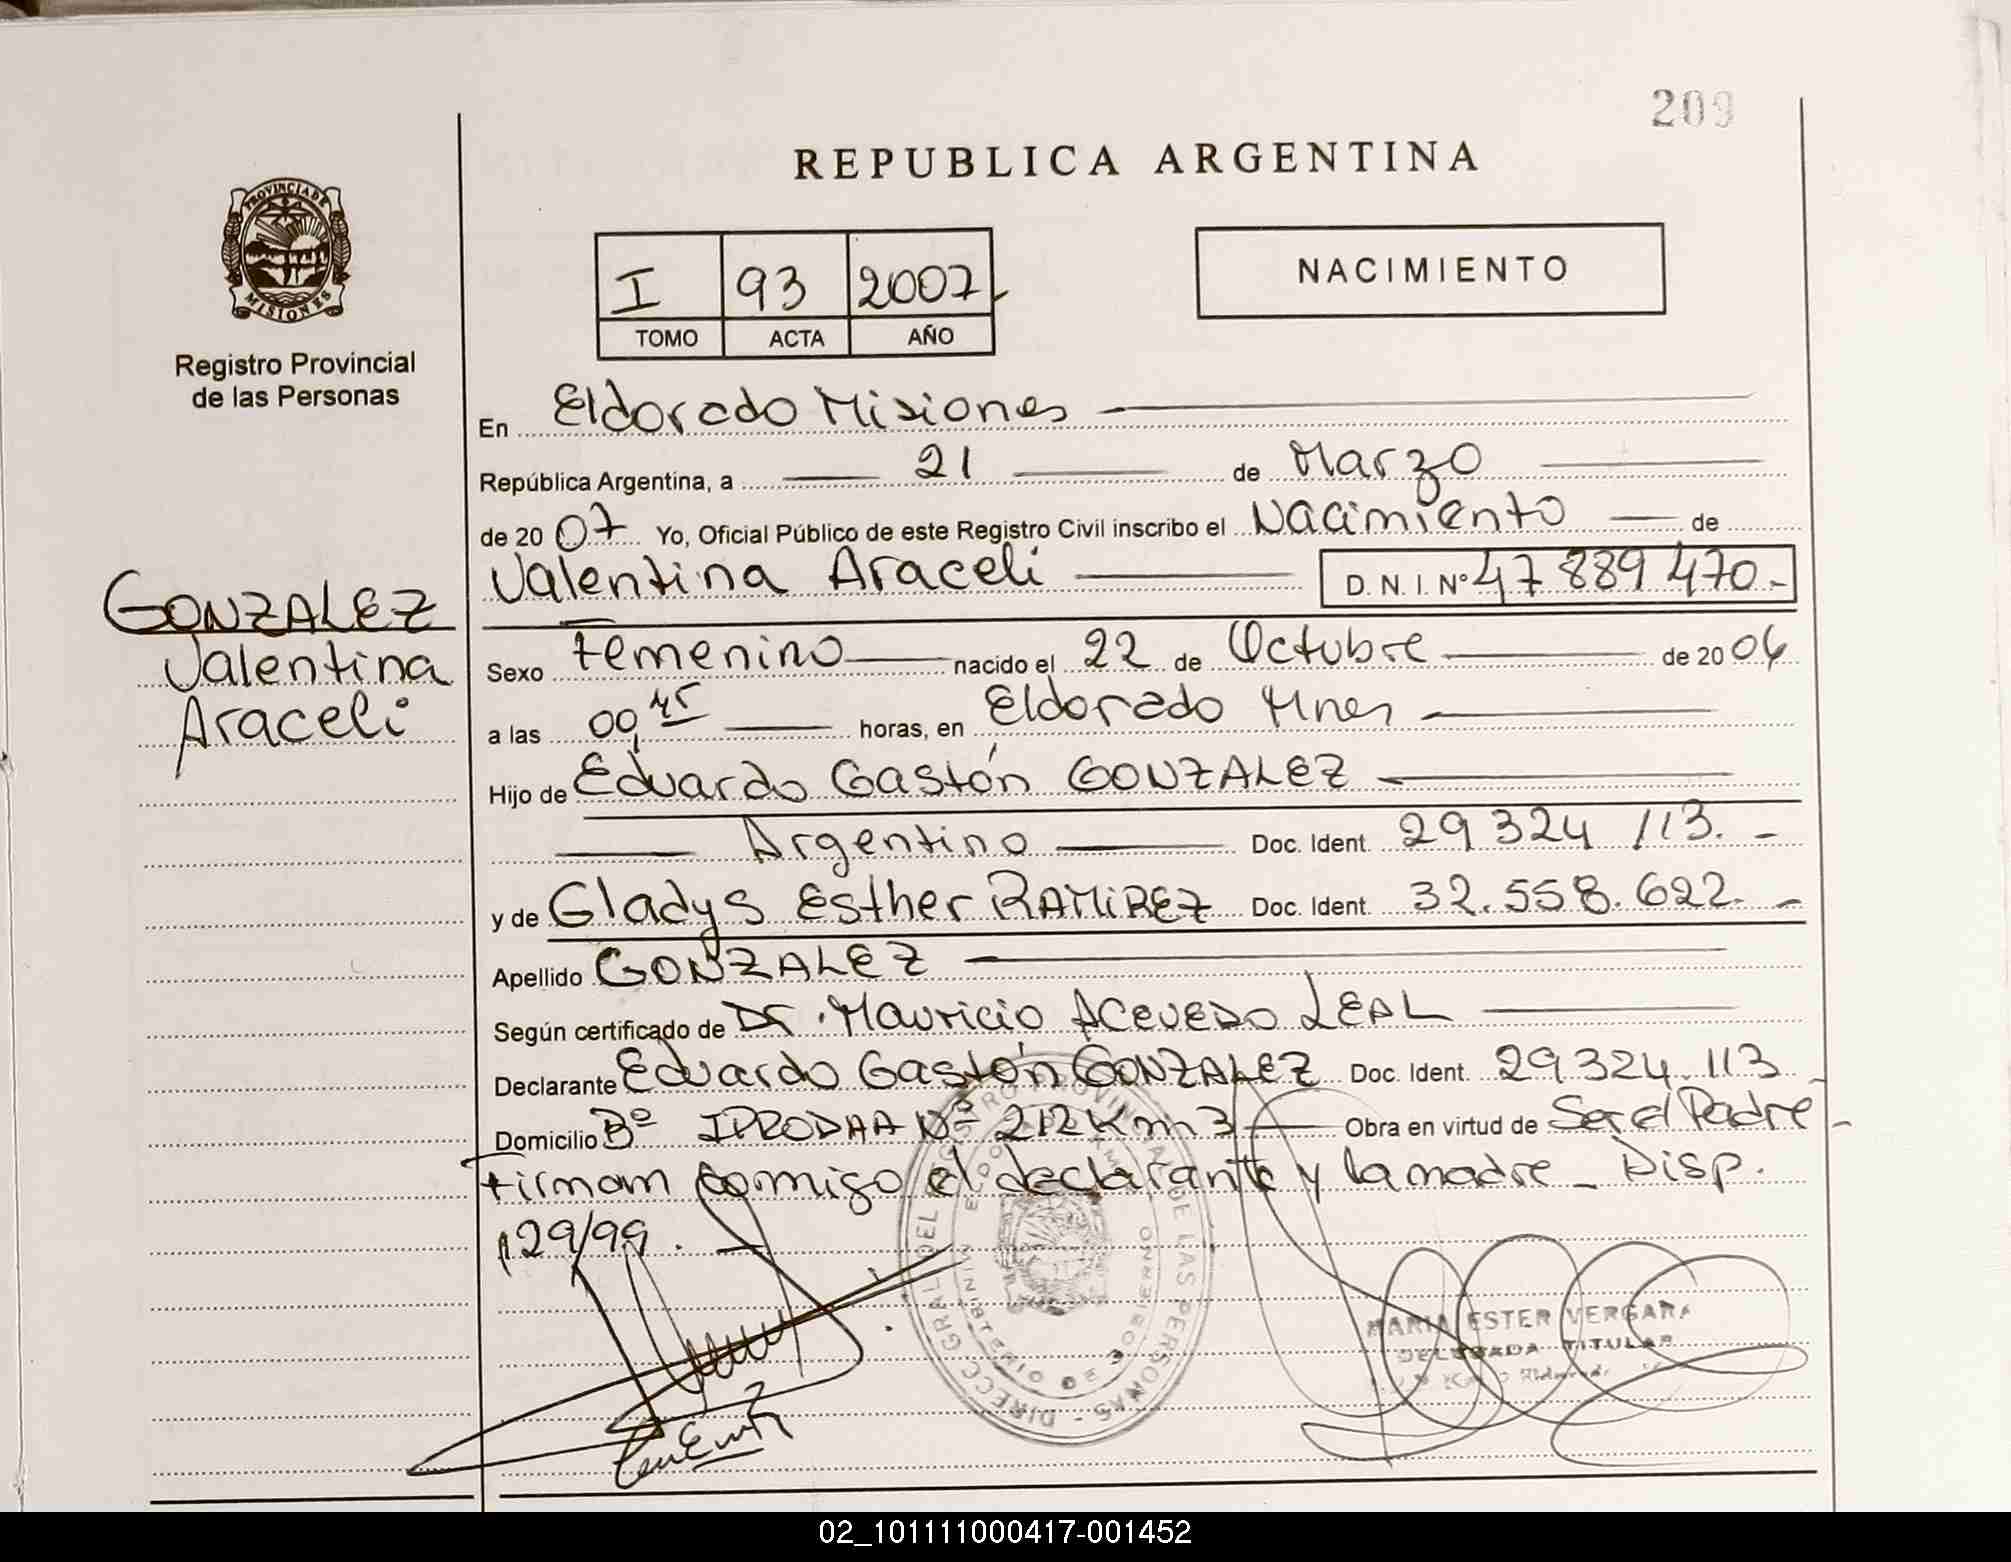 209
REPUBLICA ARGENTINA
PROVINCIA DE
MISIONES
Registro Provincial
de las Personas
I 93 2007
TOMO ACTA AÑO
NACIMIENTO
En Eldorado Misiones
República Argentina, a 21 de Marzo
de 2007 Yo, Oficial Público de este Registro Civil inscribo el Nacimiento de
Valentina Araceli D.N.I. Nº 47 889 470.-
GONZALEZ
Valentina
Araceli
Sexo Femenino nacido el 22 de Octubre de 2006
a las 00,45 horas, en Eldorado Mnes
Hijo de Eduardo Gastón GONZALEZ
Argentino Doc. Ident. 29 324 113. -
y de Gladys Esther RAMIREZ Doc. Ident. 32.558.622. -
Apellido GONZALEZ
Según certificado de Dr. Mauricio ACEVEDO LEAL
Declarante Eduardo Gastón GONZALEZ Doc. Ident. 29324.113
Domicilio Bº IPRODHA Nº 212 Km 3 Obra en virtud de Ser el Padre -
Firmam commigo el declarante y la madre - Disp.
129/99. -
DIRECC GRAL DEL REGISTRO PROVINCIAL DE LAS PERSONAS -
MARIA ESTER VERGARA
DELEGADA TITULAR
02_101111000417-001452